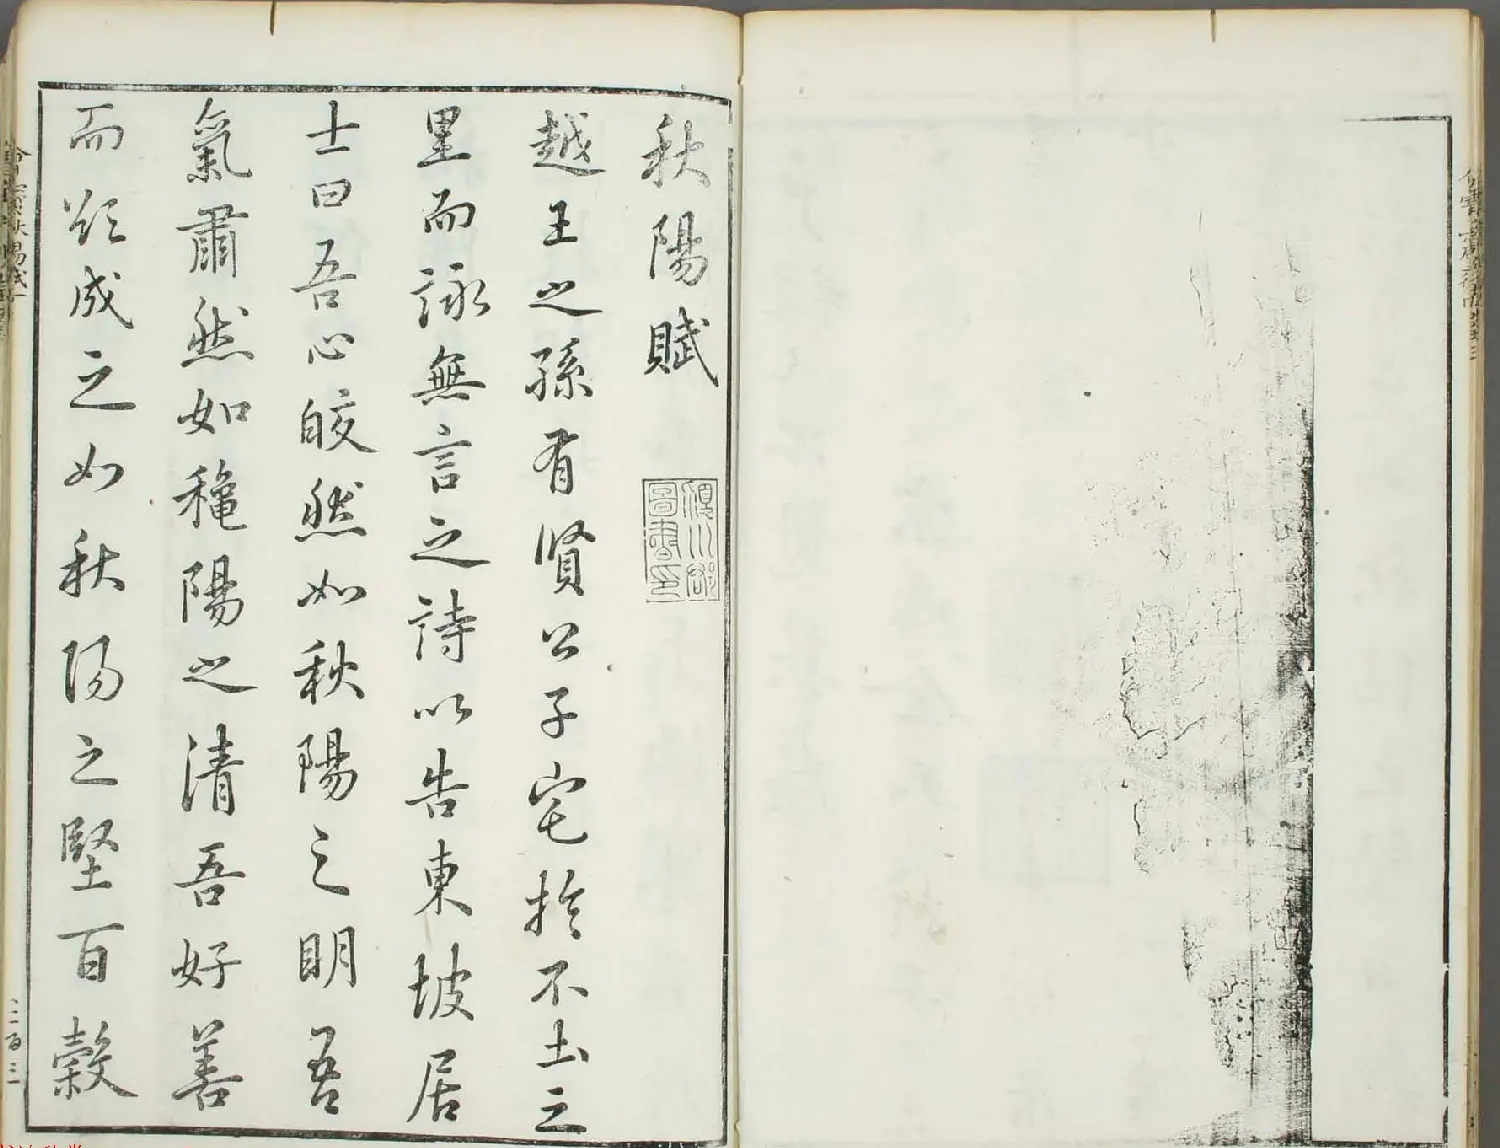 秋陽賦
越王之孫有賢公子宅於不土之
里而詠無言之詩以告東坡居
士曰吾心皎然如秋陽之明吾
氣肅然如穐陽之清吾好善
而欲成之如秋陽之堅百穀
圖書印
二百三